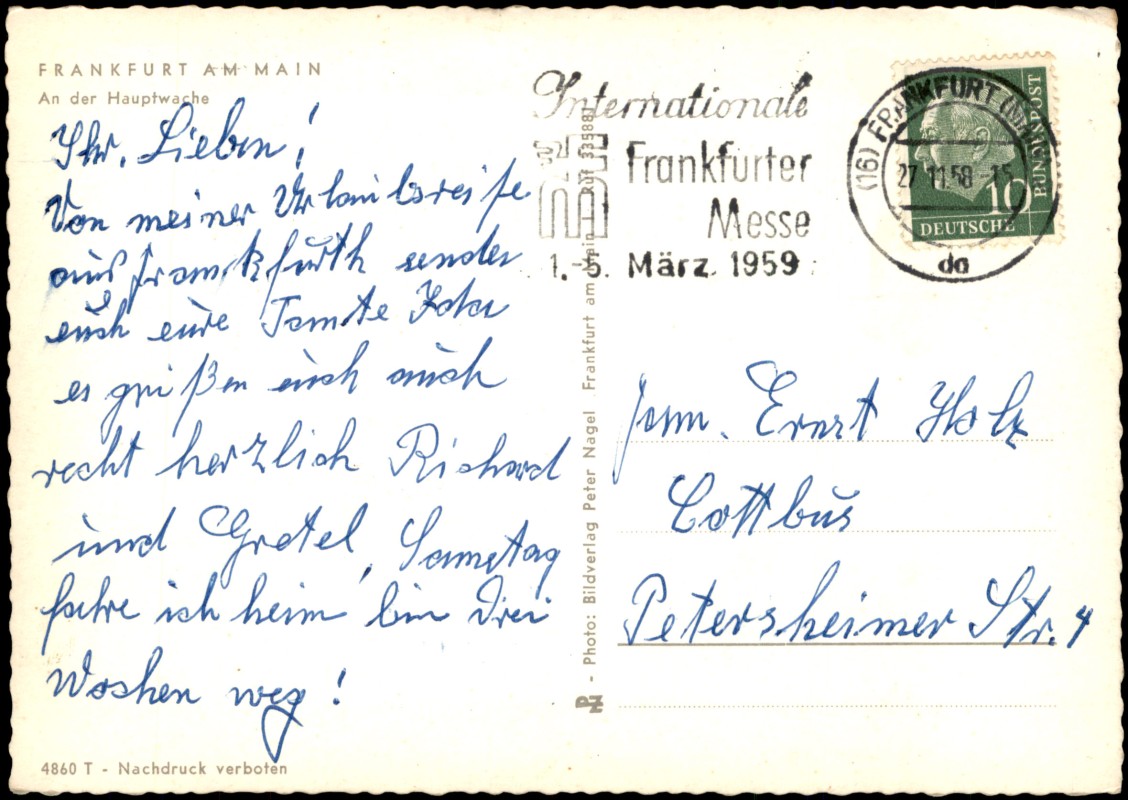 FRANKFURT AM MAIN
An der Hauptwache
Ihr, Lieben!
Von meiner Urlaubsreise
aus Frankfurth senden
euch eure Tante
es grüßen euch auch
recht herzlich Richard
und Gretel, Samstag
fahre ich heim bin Drei
Wochen weg!
4860 T - Nachdruck verboten
PN - Photo: Bildverlag Peter Nagel Frankfurt am Main Ruf 335887
Internationale
Frankfurter
Messe
1.-5. März 1959
(16) FRANKFURT (MAIN)
27.11.58-15
da
10
DEUTSCHE
BUNDESPOST
Fam. Ernst Holz
Cottbus
Petersheimer Str. 4